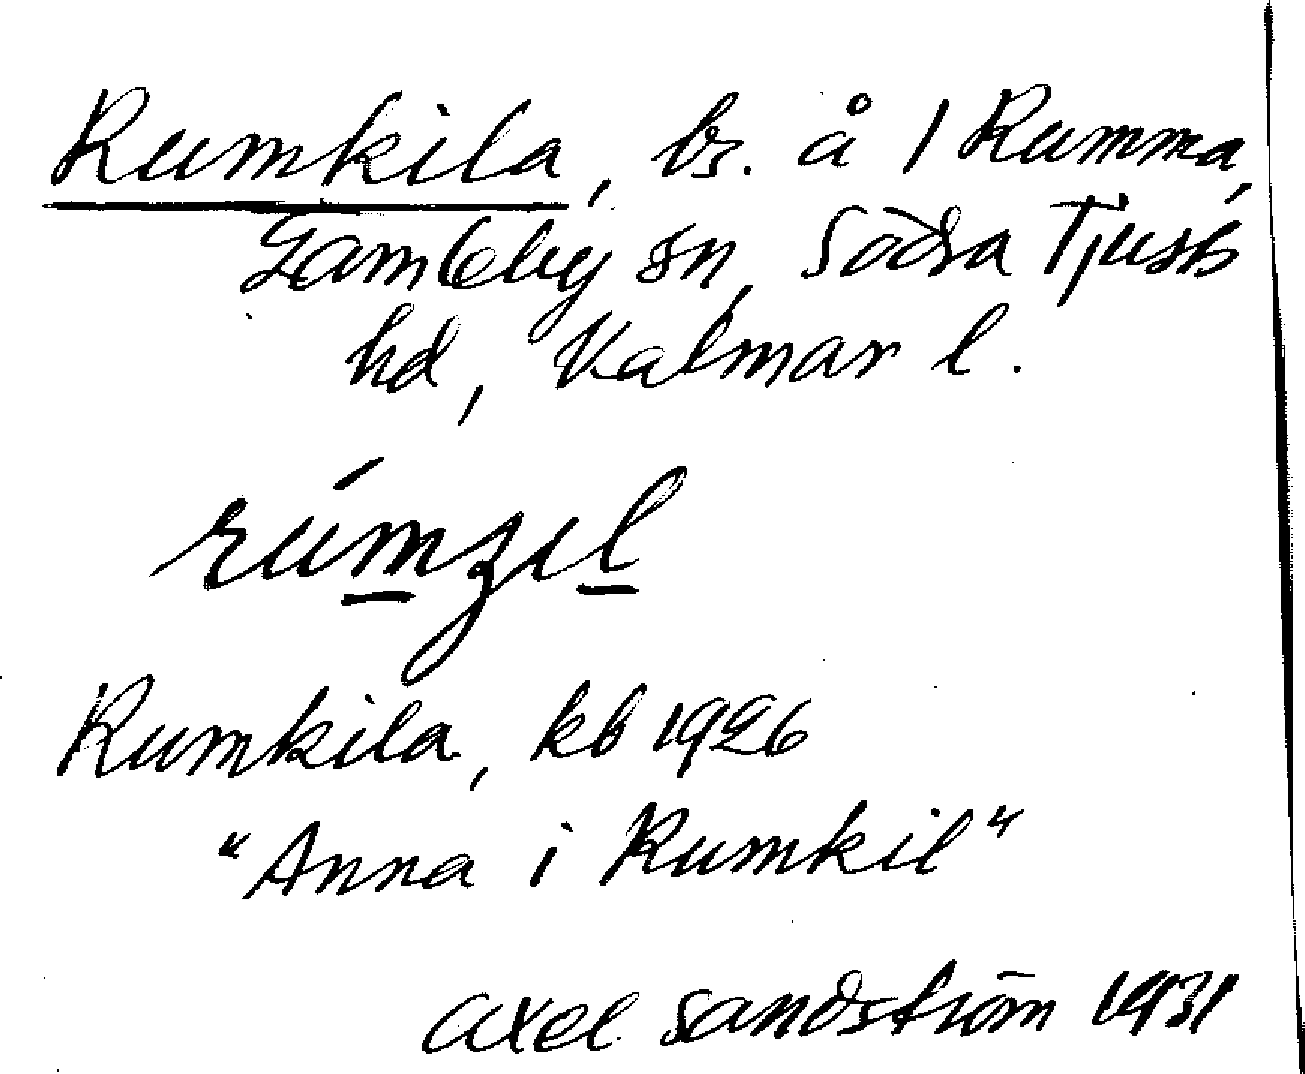 Rumkila, bs. å 1 Rumma,
Gamleby sn, Södra Tjusts
hd, Kalmar l.
rúmʒıl
Rumkila, kb 1926
"Anna i Rumkil"
Axel Sandström 1931